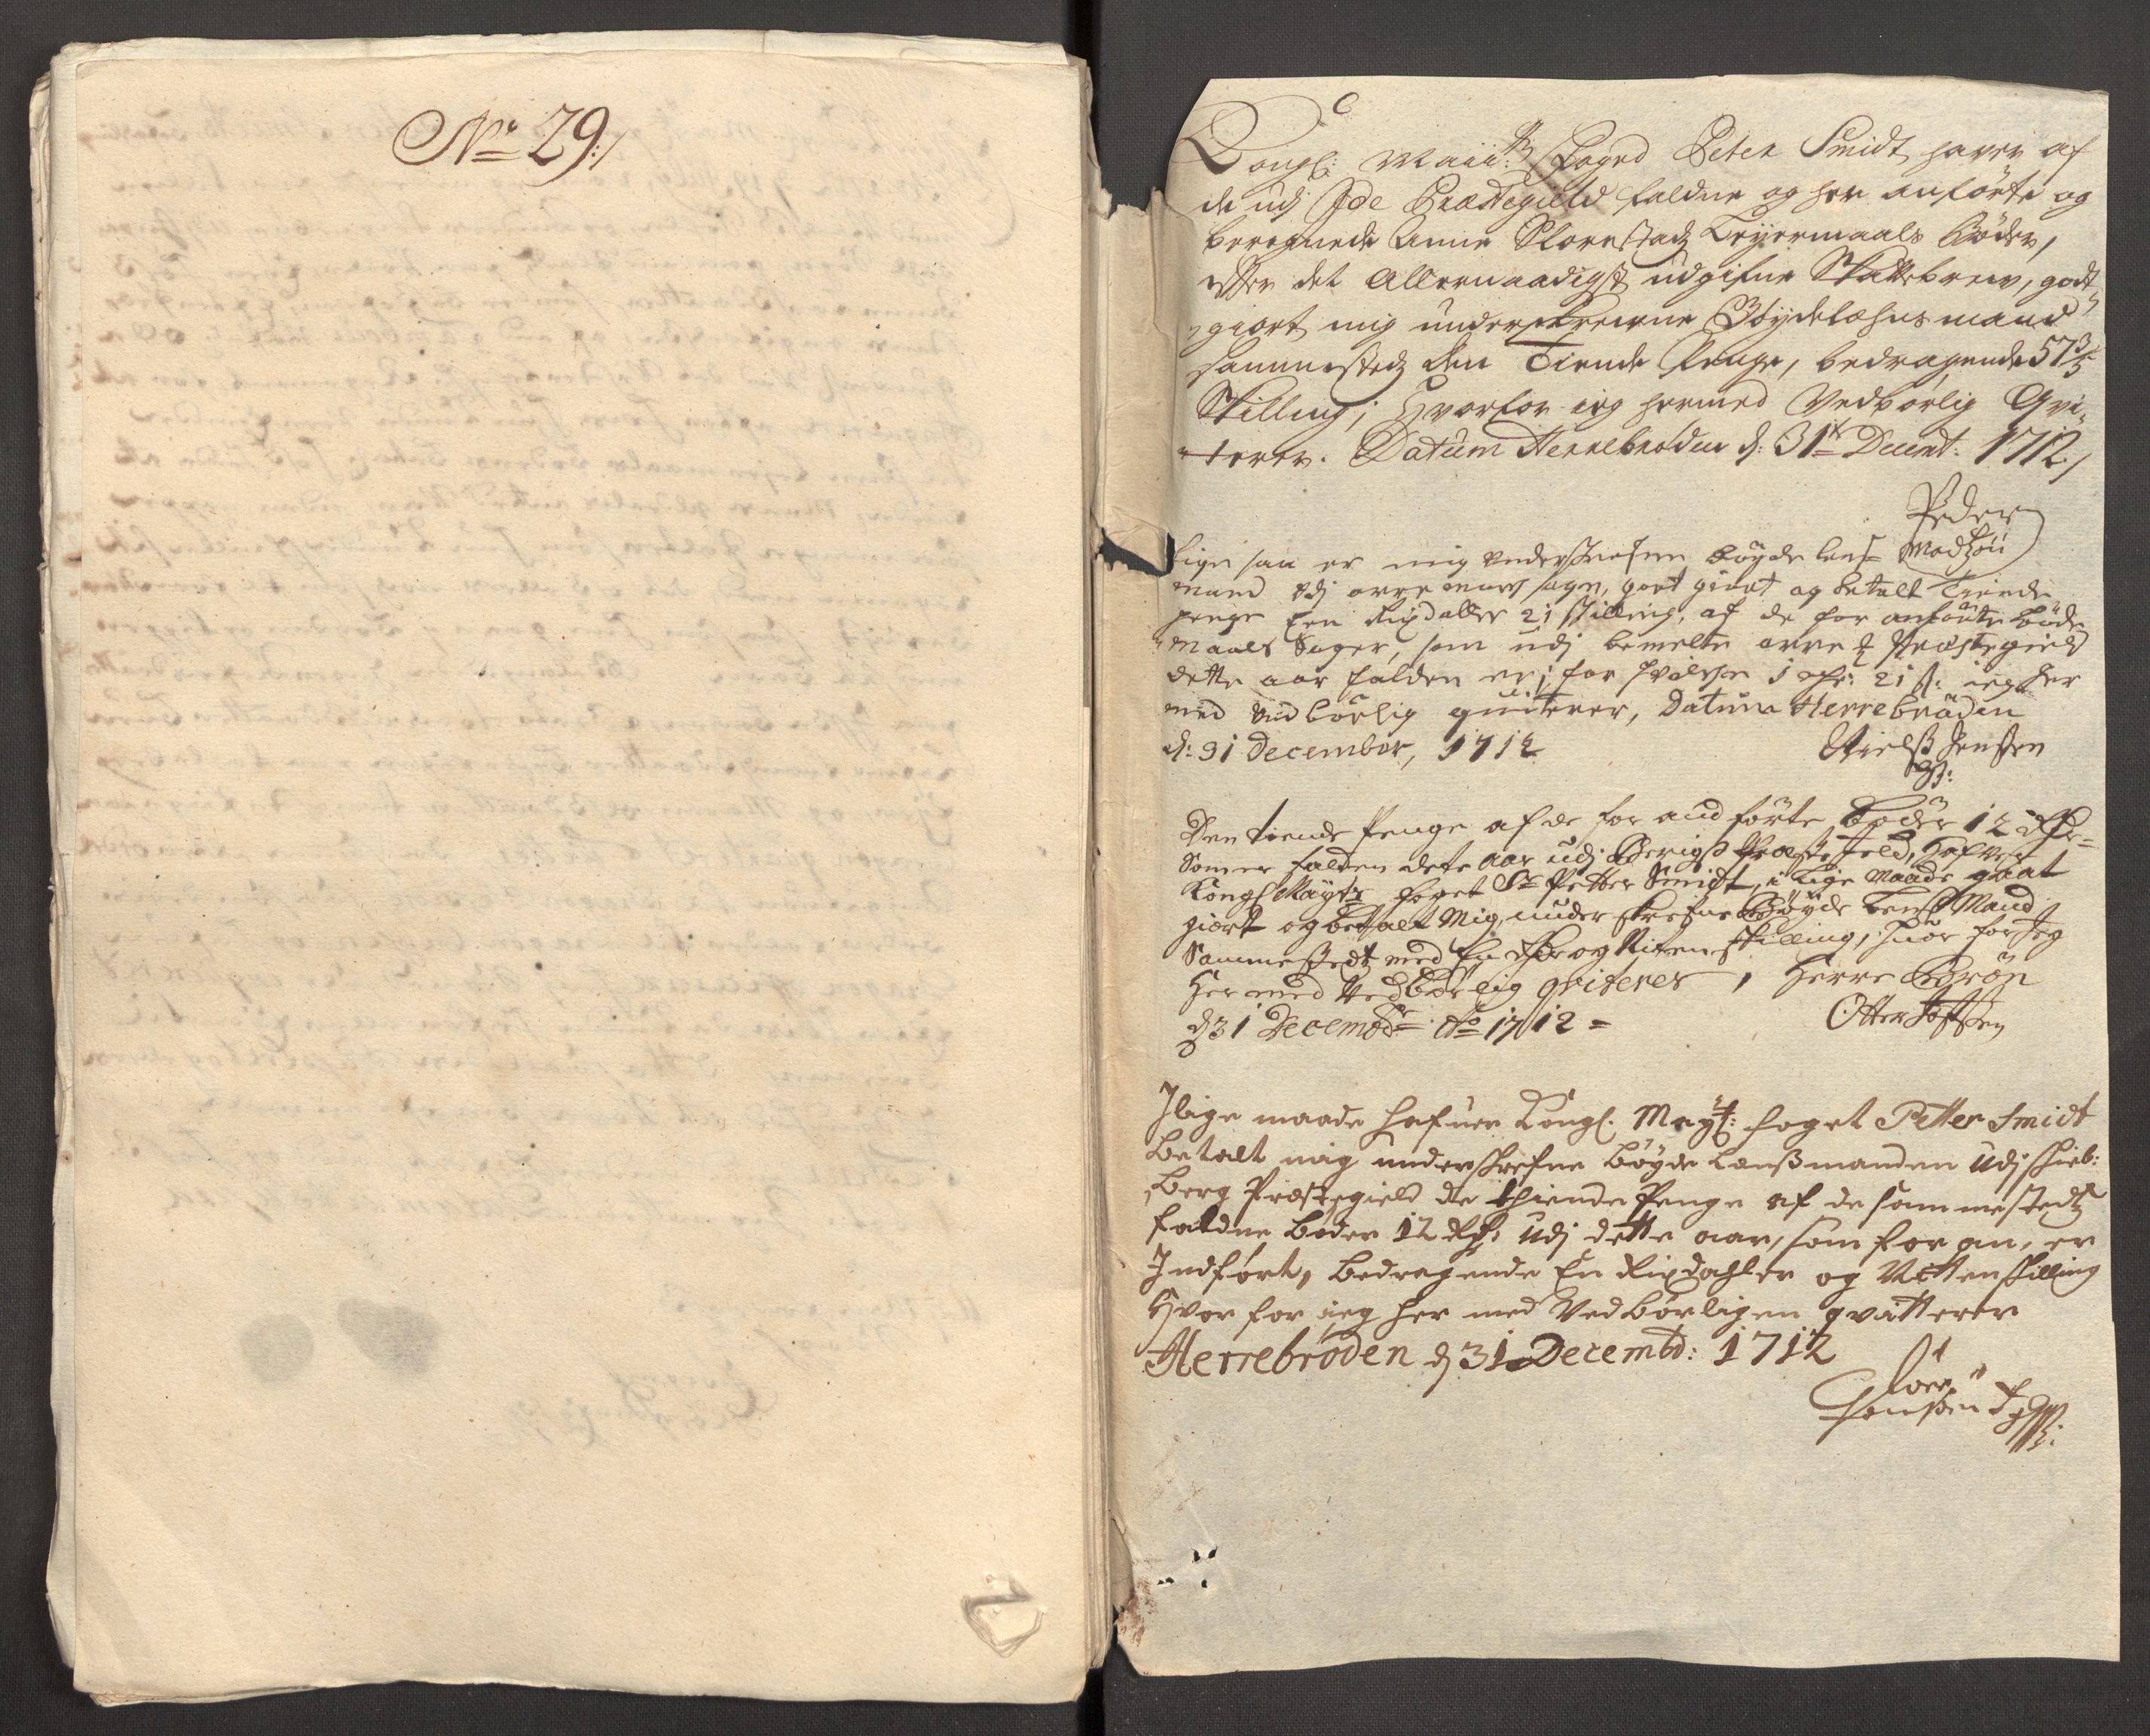 No 29./
Kongl: Maiits Foged Peter Smidt haver af
de udj Jde Præstegield faldne og her anførte og
beregnede Anne Slorestads Leyermaals Bøder,
efter det Allernaadigst udgifne Skattebrew, godt„
„giort mig underskrevne Bøydelæhnsmand
sammesteds den Tiende Penge, bedragende 57 3/5
Skilling; Hvorfor ieg hermed Vedbørlig Qvi„
„terer. Datum Herrebrøden d: 31te Decembr: 1712./
Peder
Madsøn
Lige saa er mig underskrefne bøyde lens
mand udj sogn, goet giort og betalt Tiende
penge Een Rixdaller 21 skilling, af de for anførte bøde
maals Sager, som udj bemelte Præstegield
dette aar falden er; for hvilchen 1 rdr: 21 s: ieg her
med vedbørlig quiterer, Datum Herrebrøden
d: 31 December, 1712
Nielss Jensen
Den tiende Penge af de for andførte Bøder 12 rdr
Som er falden dete Aar udj Bergs Præstegield, Hafver
Kongl Mayts foget Sr Petter Smidt, i Lige Maade gaat
giort og betalt Mig, underskrefne Bøyde Lens Mand
Sammestedtz med En rdr og Niten skilling, huor for Jeg
Hermed Vedbørlig qviterer, Herre Brøn
d 31 Decembr Ao 1712
Otter
J lige maade hafuer Kongl. Mayts: foget Petter Smidt
Betalt mig underskrefne Bøyde Lænssmanden udj Skieb:
berg Præstegield de thiende Penge af de sammestedtz
faldne Bøder 12 Rdr. udj dette aar, som for an, er
Jndført, bedragende En Rixdahler og Netten skilling
Hvor for ieg her med Vedbørligen qvitterer
Herrebrøden d 31 Decembr: 1712